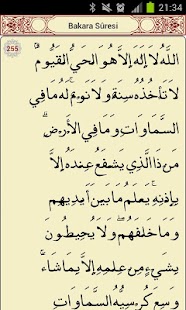 21:34
Bakara Sûresi
255
اَللّٰهُ لَٓا اِلٰهَ اِلَّا هُوَ الْحَيُّ الْقَيُّومُ
لَا تَأْخُذُهُ سِنَةٌ وَلَا نَوْمٌ لَهُ مَا فِي
السَّمَاوَاتِ وَمَا فِي الْاَرْضِ
مَنْ ذَا الَّذِي يَشْفَعُ عِنْدَهُ اِلَّا
بِاِذْنِهِ يَعْلَمُ مَا بَيْنَ اَيْدِيهِمْ
وَمَا خَلْفَهُمْ وَلَا يُحِيطُونَ
بِشَيْءٍ مِنْ عِلْمِهِ اِلَّا بِمَا شَاءَ
وَسِعَ كُرْسِيُّهُ السَّمَاوَاتِ